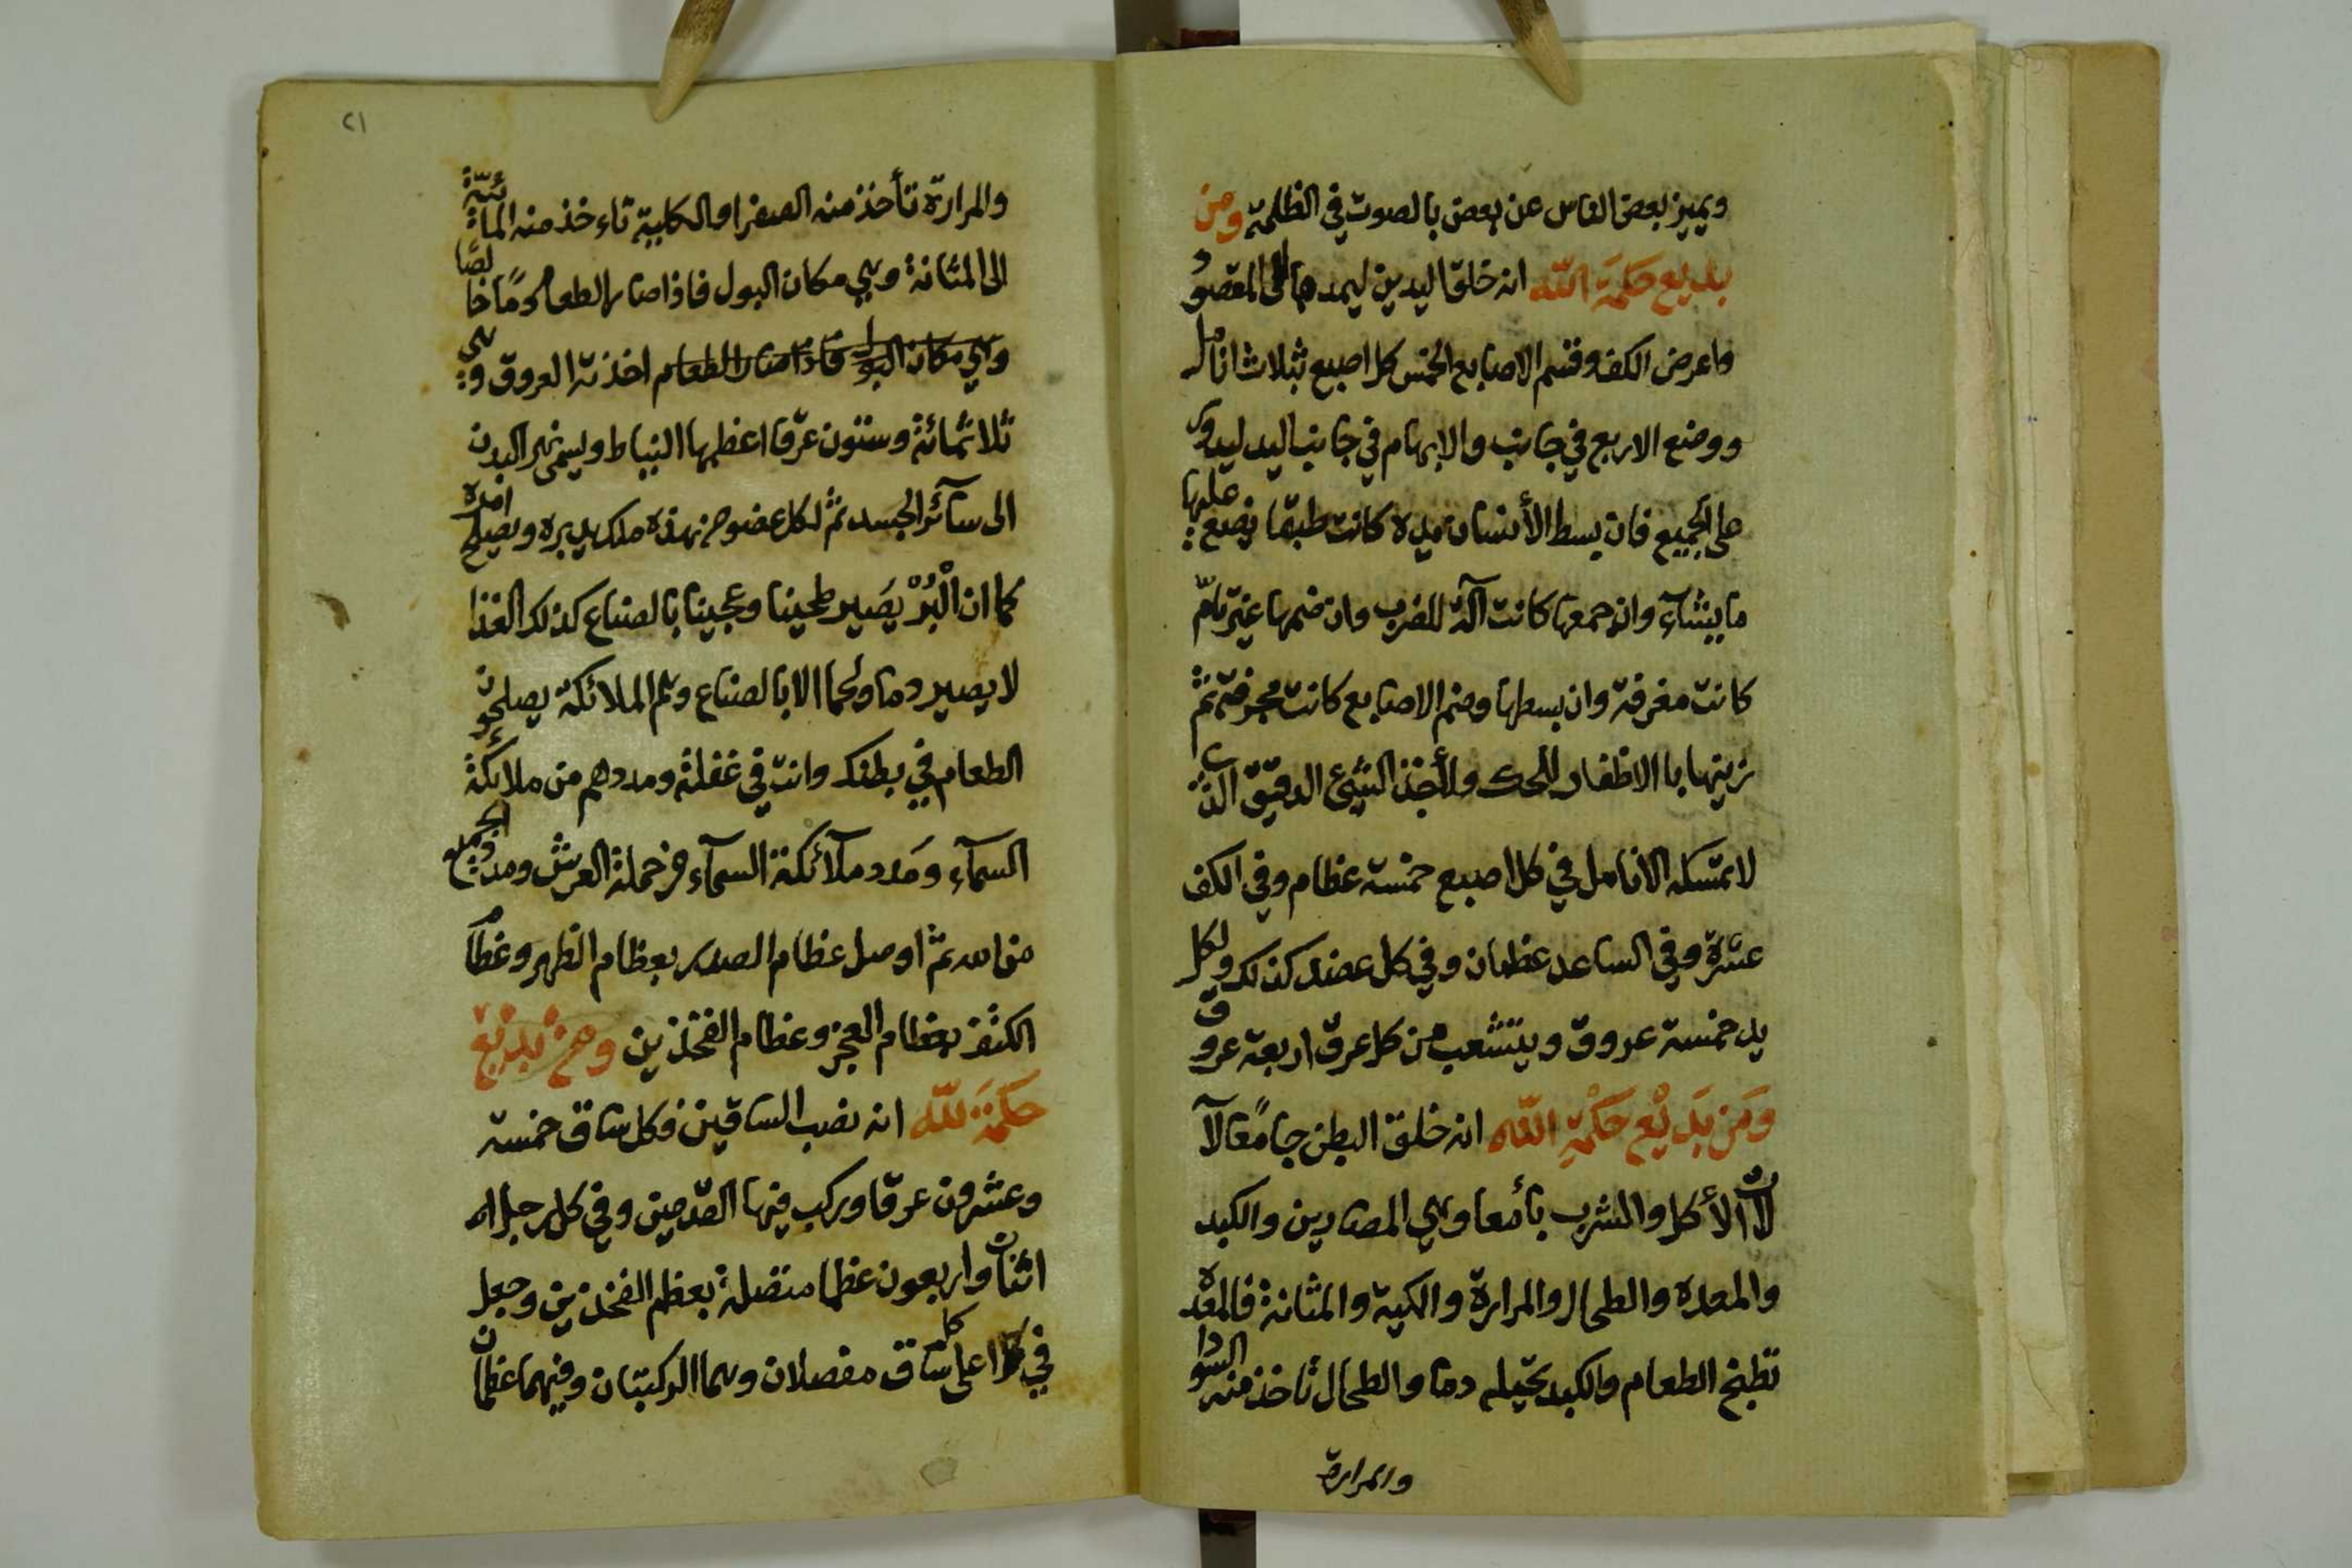 ويميز بعض الناس عن بعض بالصوت في الظلمة ومن
بديع حكمة الله انه خلق اليدين ليمدها الى المقصود
واعرض الكف وقسم الاصابع الخمس كل اصبع بثلاث انامل
ووضع الاربع في جانب والابهام في جانب اليد ليدور
على الجميع فان بسط الأنسان يده كانت طبقا يضع عليها
ما يشآء وان جمعها كانت آلة للضرب وان ضمها غير تامّ
كانت مغرفة وان بسطها وضم الاصابع كانت مجرفة ثم
زينها با الاظفار للحك ولأخذ الشيئ الدقيق الذي
لا تمسكه الانامل في كل اصبع خمسة عظام وفي الكف
عشرة وفي الساعد عظمان وفي كل عضد كذلك ولكل
يد خمسة عروق ويتشعب من كل عرق اربعة عروق
وَمَن بَدِيْع حَكْمَةِ اللّه انه خلق البطن جامعًا لآ
لات الأكل والشرب بأمعا وهي المصارين والكبد
والمعدة والطحال والمرارة والكية والمثانة فالمعدة
تطبخ الطعام والكبد يحيله دما والطحال تاخذ منه السودا
والمرارة
٢١
والمرارة تأخذ منه الصفرا والكلية تاءخذ منه المائيّة
الى المثانة وهي مكان البول فاذا صار الطعام دمًا خالصًا
وهي مكان البول فاذا صار الطعام اخذته العروق وهي
ثلاثمائة وستون عرقا اعظمها النياط ويسمى نهر البدن
الى سآئر الجسد ثم لكل عضو من هذه ملك يدبره ويصلح امره
كما ان الْبُرْ يَصير طحينا وعجينا بالصناع كذلك الغذا
لا يصير دما ولحما الا بالصناع وهم الملائكة يصلحون
الطعام في بطنك وانت في غفلة ومددهم من ملائكة
السمآء وَمَدد ملآئكة السمآء من حملة العرش ومدد الجميع
من الله ثم اوصل عظام الصدر بعظام الظهر وعظام
الكتف بعظام العجز وعظام الفخذين ومن بديع
حكمة للّه انه نصب الساقين فكل ساق خمسة
وعشرون عرقا وركب فيها القدمين وفي كل رجل له
اثنان واربعون عظما متصلة بعظم الفخذين وجعل
في اعلى كل ساق مفصلان وهما الركبتان وفيهما عظمان